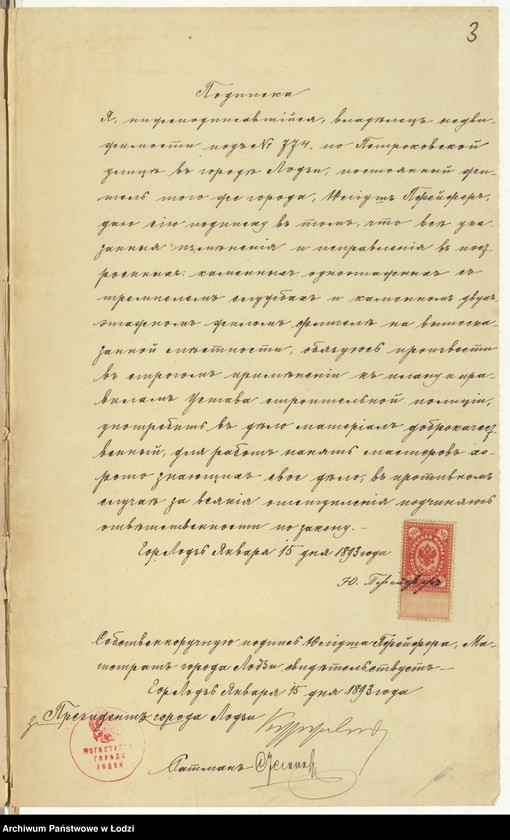 3
Подписка
Я, нижеподписавшійся, владѣлецъ недви-
жимости подъ № 774, по Петроковской
улицѣ въ городѣ Лодзи, постоянный жи-
тель того же города, Юліушъ Перейферъ,
даю сію подписку въ томъ, что всѣ ука-
занныя измѣненія и исправленія въ пост-
роенныхъ: каменныхъ одноэтажныхъ съ
тремпелемъ службахъ и каменномъ двух-
этажномъ жиломъ флигелѣ на вышеска-
занной мѣстности, обязуюсь произвести
въ строгомъ примѣненіи къ плану и пра-
виламъ Устава строительной полиціи,
употребить въ дѣло матеріалъ доброкачест-
венный, для работъ нанять мастеровъ хо-
рошо знающихъ свое дѣло, въ противномъ
случаѣ за всякія отступленія подчиняюсь
отвѣтственности по закону.
Гор. Лодзь Января 15 дня 1893 года
Ю.
80 80
Собственноручную подпись Юліуша, Ма-
гистратъ города Лодзи свидѣтельствуетъ
Гор. Лодзь Января 15 дня 1893 года
за Президентъ города Лодзи
МАГИСТРАТЪ
ГОРОДА
ЛОДЗИ
Ратманъ
Archiwum Państwowe w Łodzi